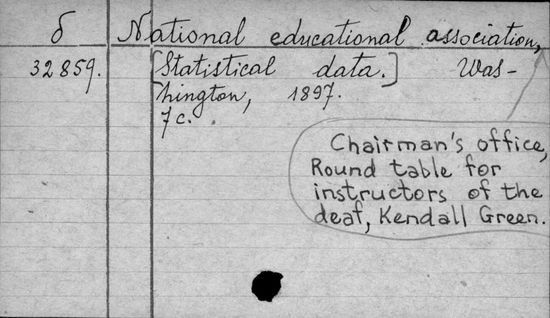 δ National educational association,
32859. [Statistical data.] Was-
hington, 1897.
7c.
Chairman's office,
Round table for
instructors of the
deaf, Kendall Green.